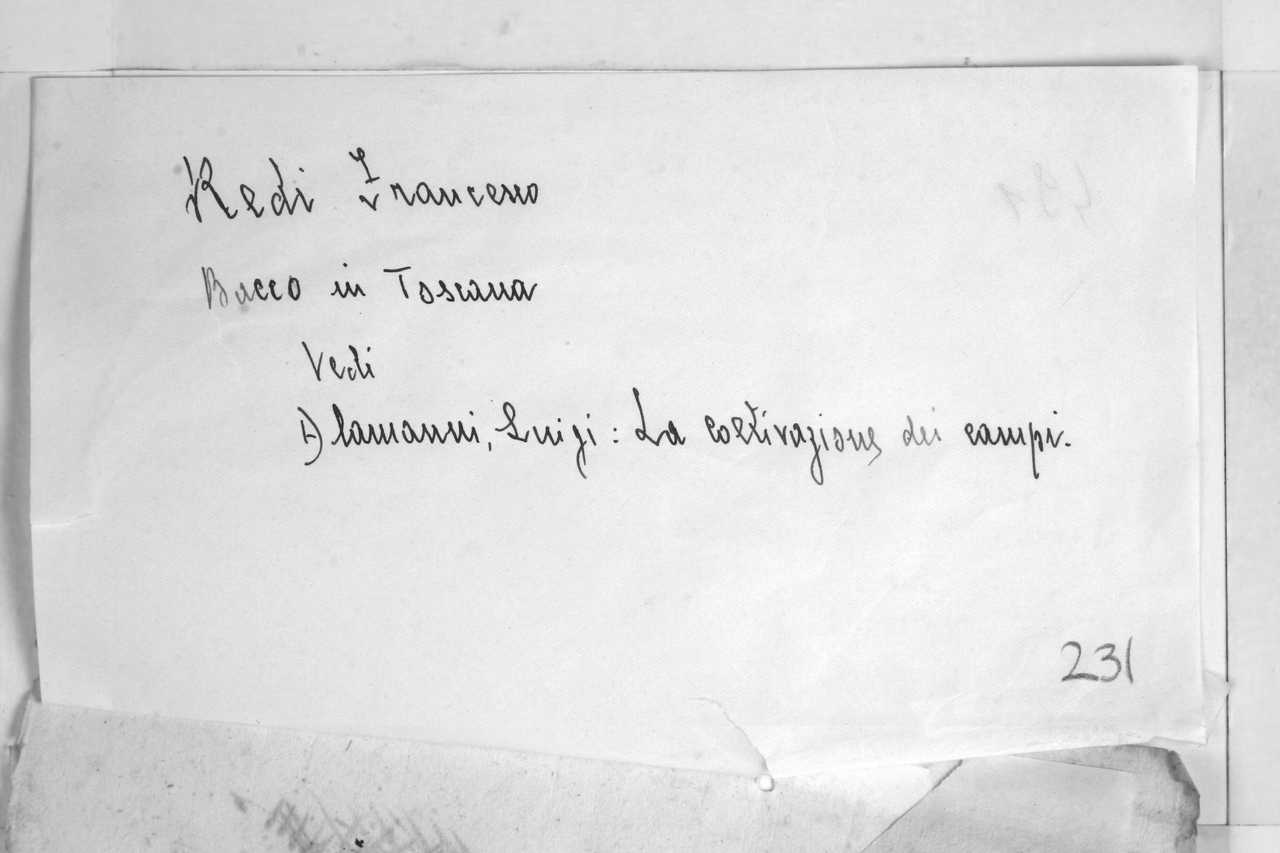 Redi Francesco
Bacco in Toscana
Vedi
Alamanni, Luigi: La coltivazione dei campi.
231